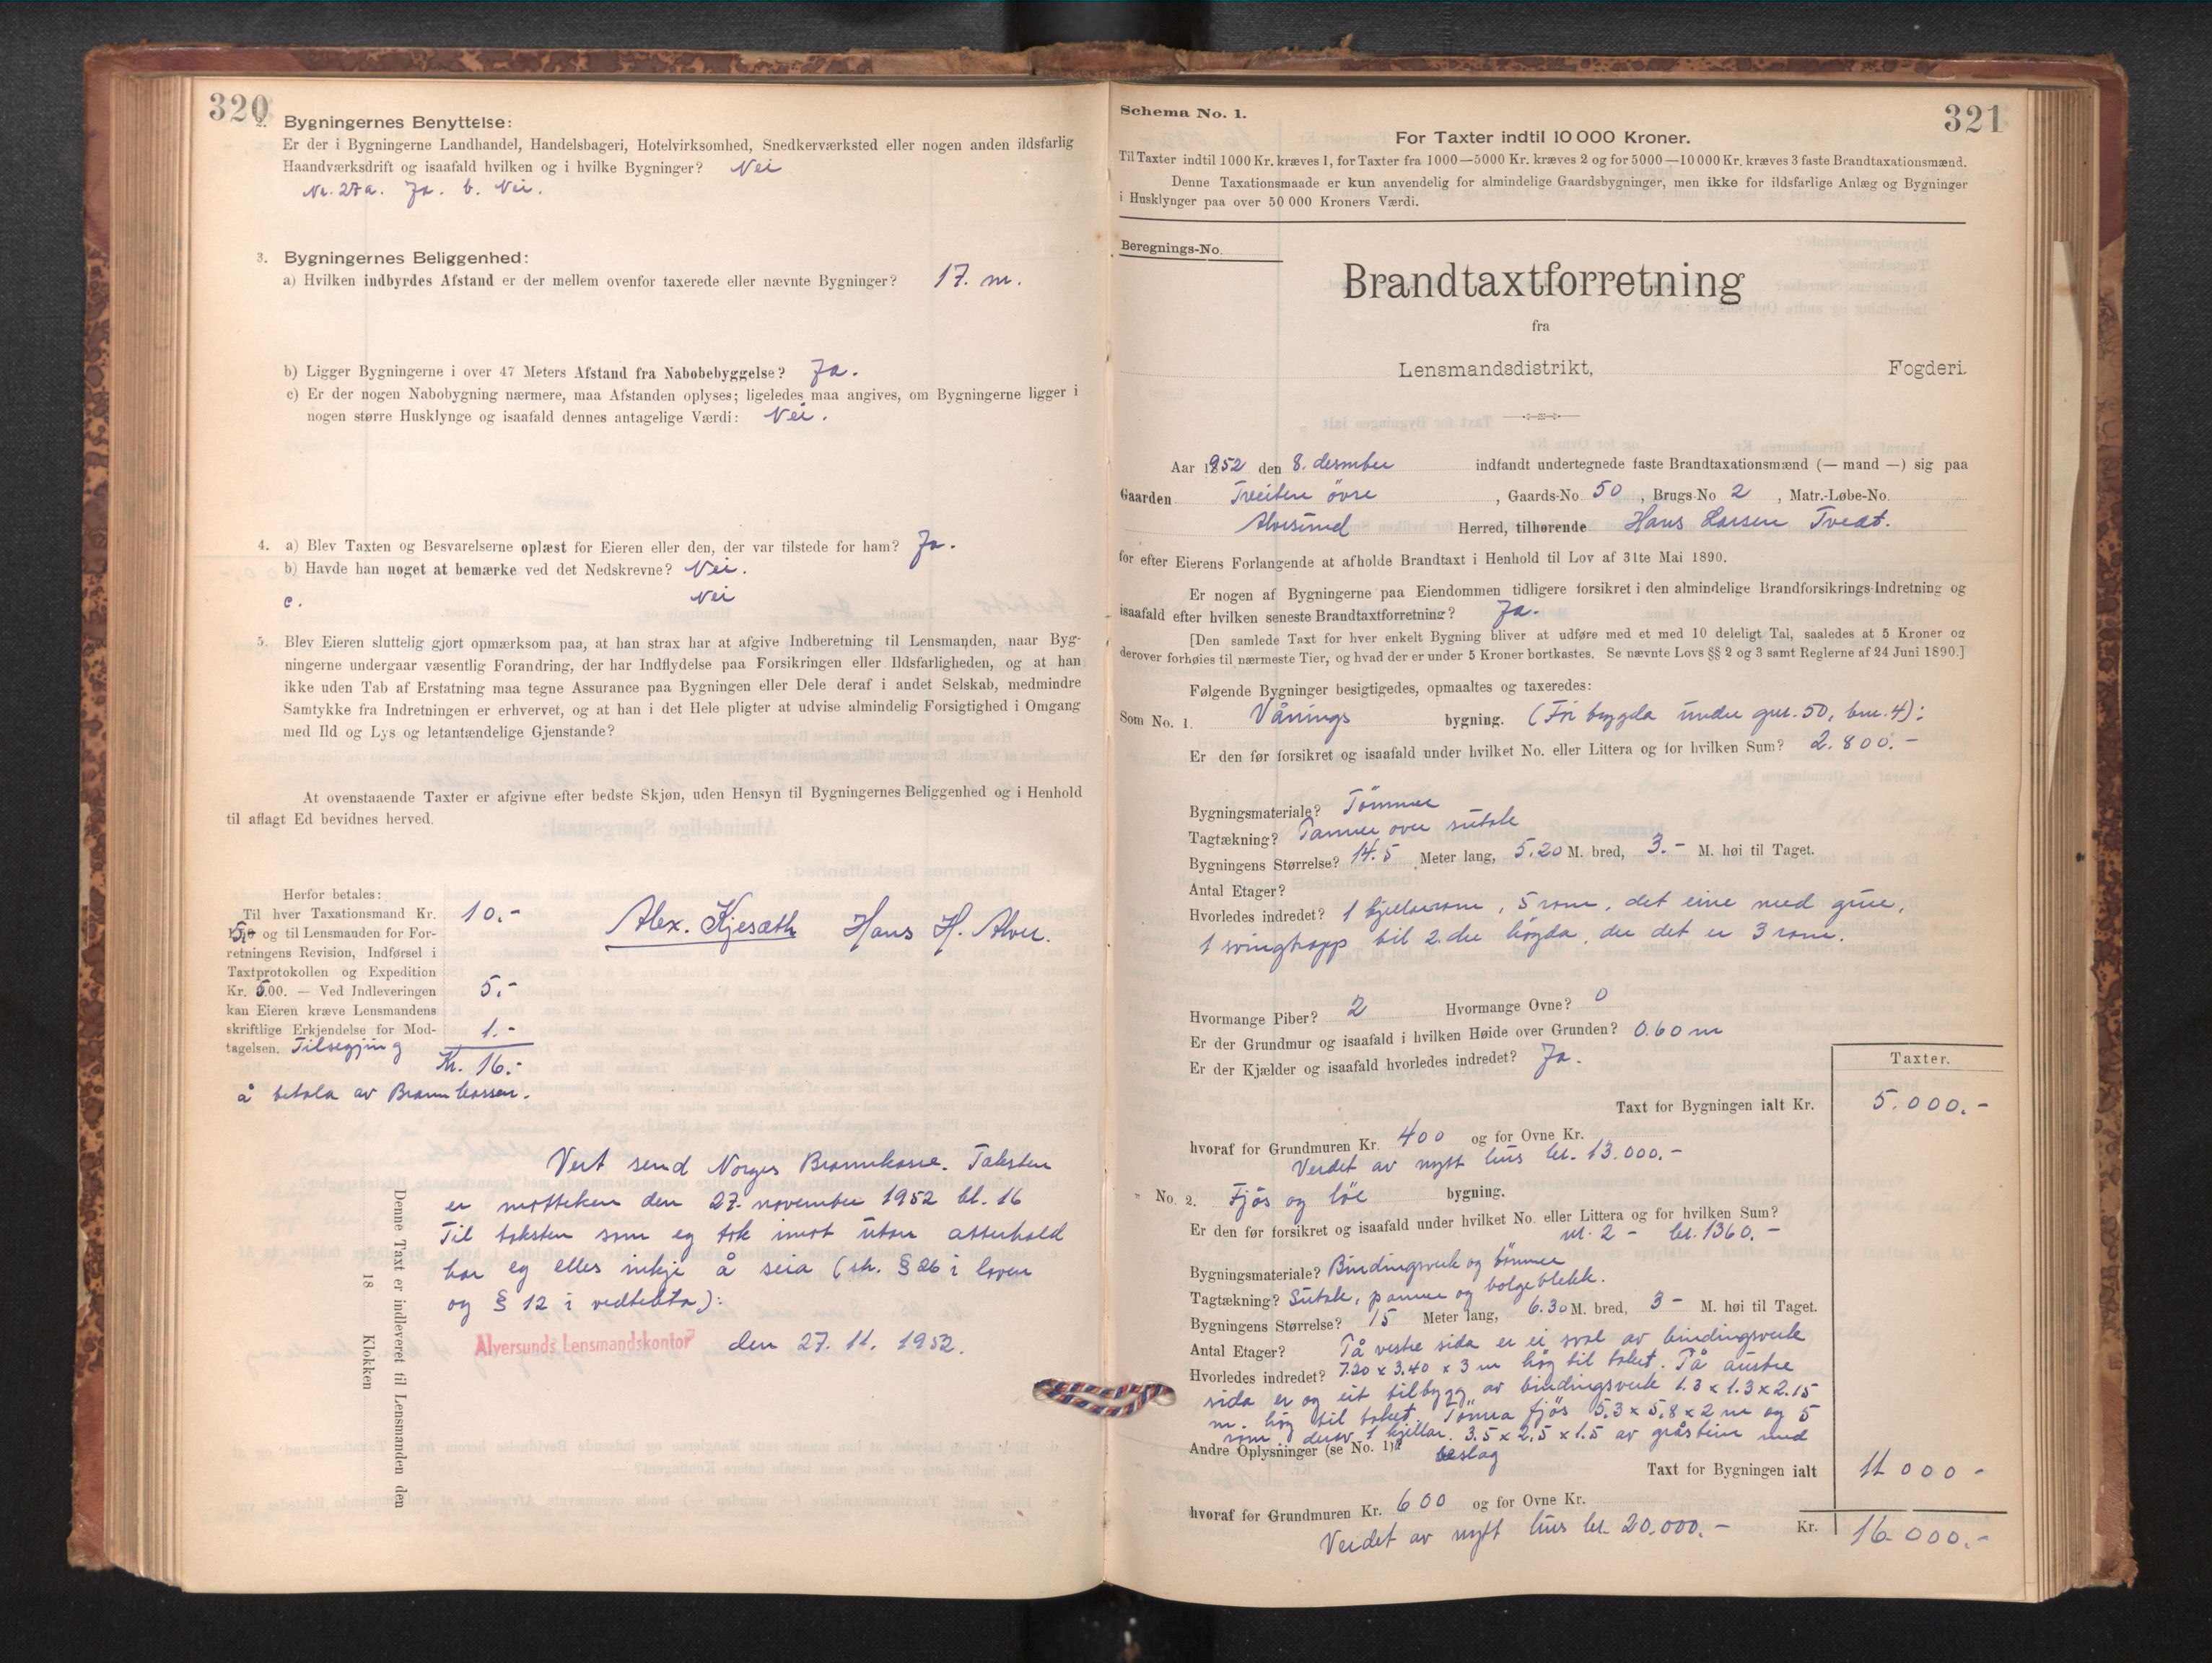 320
2. Bygningernes Benyttelse:
Er der i Bygningerne Landhandel, Handelsbageri, Hotelvirksomhed, Snedkerværksted eller nogen anden ildsfarlig
Haandværksdrift og isaafald hvilken og i hvilke Bygninger? Nei
Nr. 27a. Ja. b. Nei.
3. Bygningernes Beliggenhed:
a) Hvilken indbyrdes Afstand er der mellem ovenfor taxerede eller nævnte Bygninger? 17. m.
b) Ligger Bygningerne i over 47 Meters Afstand fra Nabobebyggelse? Ja.
c) Er der nogen Nabobygning nærmere, maa Afstanden oplyses; ligeledes maa angives, om Bygningerne ligger i
nogen større Husklynge og isaafald dennes antagelige Værdi: Nei.
4. a) Blev Taxten og Besvarelserne oplæst for Eieren eller den, der var tilstede for ham? Ja.
b) Havde han noget at bemærke ved det Nedskrevne? Nei.
c. Nei
5. Blev Eieren sluttelig gjort opmærksom paa, at han strax har at afgive Indberetning til Lensmanden, naar Byg-
ningerne undergaar væsentlig Forandring, der har Indflydelse paa Forsikringen eller Ildsfarligheden, og at han
ikke uden Tab af Erstatning maa tegne Assurance paa Bygningen eller Dele deraf i andet Selskab, medmindre
Samtykke fra Indretningen er erhvervet, og at han i det Hele pligter at udvise almindelig Forsigtighed i Omgang
med Ild og Lys og letantændelige Gjenstande?
At ovenstaaende Taxter er afgivne efter bedste Skjøn, uden Hensyn til Bygningernes Beliggenhed og i Henhold
til aflagt Ed bevidnes herved.
Herfor betales:
Til hver Taxationsmand Kr. 10.-
5,- og til Lensmanden for For-
retningens Revision, Indførsel i
Taxtprotokollen og Expedition
Kr. 5.00. — Ved Indleveringen 5.-
kan Eieren kræve Lensmandens
skriftlige Erkjendelse for Mod- 1.-
tagelsen. Tilsegjing
Kr. 16.-
å betala av Brannkassen.
Alex. Kjesæth Hans H. Alver.
Vert send Norges Brannkasse. Taksten
er motteken den 27. november 1952 kl. 16
Til taksten som eg tok imot utan atterhald
har eg elles inkje å seia (sh. § 26 i loven
og § 12 i vedtekta):
Alversunds Lensmandskontor den 27. 11. 1952.
Denne Taxt er indleveret til Lensmanden den
18 Klokken
Schema No. 1.
321
For Taxter indtil 10 000 Kroner.
Til Taxter indtil 1000 Kr. kræves 1, for Taxter fra 1000—5000 Kr. kræves 2 og for 5000—10 000 Kr. kræves 3 faste Brandtaxationsmænd.
Denne Taxationsmaade er kun anvendelig for almindelige Gaardsbygninger, men ikke for ildsfarlige Anlæg og Bygninger
i Husklynger paa over 50 000 Kroners Værdi.
Beregnings-No.
Brandtaxtforretning
fra
Lensmandsdistrikt, Fogderi.
Aar 1952 den 8. desember indfandt undertegnede faste Brandtaxationsmænd (— mand —) sig paa
Gaarden Tveiten övre, Gaards-No 50, Brugs-No 2, Matr.-Løbe-No.
Alversund Herred, tilhørende Hans Larsen Tveit.
for efter Eierens Forlangende at afholde Brandtaxt i Henhold til Lov af 31te Mai 1890.
Er nogen af Bygningerne paa Eiendommen tidligere forsikret i den almindelige Brandforsikrings-Indretning og
isaafald efter hvilken seneste Brandtaxtforretning? Ja.
[Den samlede Taxt for hver enkelt Bygning bliver at udføre med et med 10 deleligt Tal, saaledes at 5 Kroner og
derover forhøies til nærmeste Tier, og hvad der er under 5 Kroner bortkastes. Se nævnte Lovs §§ 2 og 3 samt Reglerne af 24 Juni 1890.]
Følgende Bygninger besigtigedes, opmaaltes og taxeredes:
Som No. 1. Vånings bygning. (Før bygda under gnr. 50, bnr. 4):
Er den før forsikret og isaafald under hvilket No. eller Littera og for hvilken Sum? 2.800.-
Bygningsmateriale? Tömmer
Tagtækning? Panner over sutak
Bygningens Størrelse? 14.5 Meter lang, 5.20 M. bred, 3.- M. høi til Taget.
Antal Etager?
Hvorledes indredet? 1 kjellarrom, 5 rom, det eine med grue,
1 svingtrapp til 2. dre högda, der det er 3 rom.
Hvormange Piber? 2 Hvormange Ovne? 0
Er der Grundmur og isaafald i hvilken Høide over Grunden? 0.60 m
Er der Kjælder og isaafald hvorledes indredet? Ja.
Taxter.
Taxt for Bygningen ialt Kr. 5.000.-
hvoraf for Grundmuren Kr. 400 og for Ovne Kr.
Verdet av nytt hus kr. 13.000.-
" No. 2. Fjös og löe bygning.
Er den før forsikret og isaafald under hvilket No. eller Littera og for hvilken Sum?
nr. 2 - kr. 1360.-
Bygningsmateriale? Bindingsverk og tömmer
Tagtækning? Sutak, panner og bolgeblekk.
Bygningens Størrelse? 15 Meter lang, 6.30 M. bred, 3- M. høi til Taget.
Antal Etager? På vestre sida er ei sval av bindingsverk
Hvorledes indredet? 7.20 x 3.40 x 3 m hög til taket. På austre
sida er og eit tilbygg av bindingsverk 1.3 x 1.3 x 2.15
m. hög til taket. Tömra fjös 5,3 x 5,8 x 2 m og 5
rom, derav 1 kjellar. 3.5 x 2,5 x 1.5 av gråstein med
Andre Oplysninger (se No. 1)? beslag
Taxt for Bygningen ialt 11 000 -
hvoraf for Grundmuren Kr. 600 og for Ovne Kr.
Verdet av nytt hus kr. 20.000.-
Kr. 16.000.-